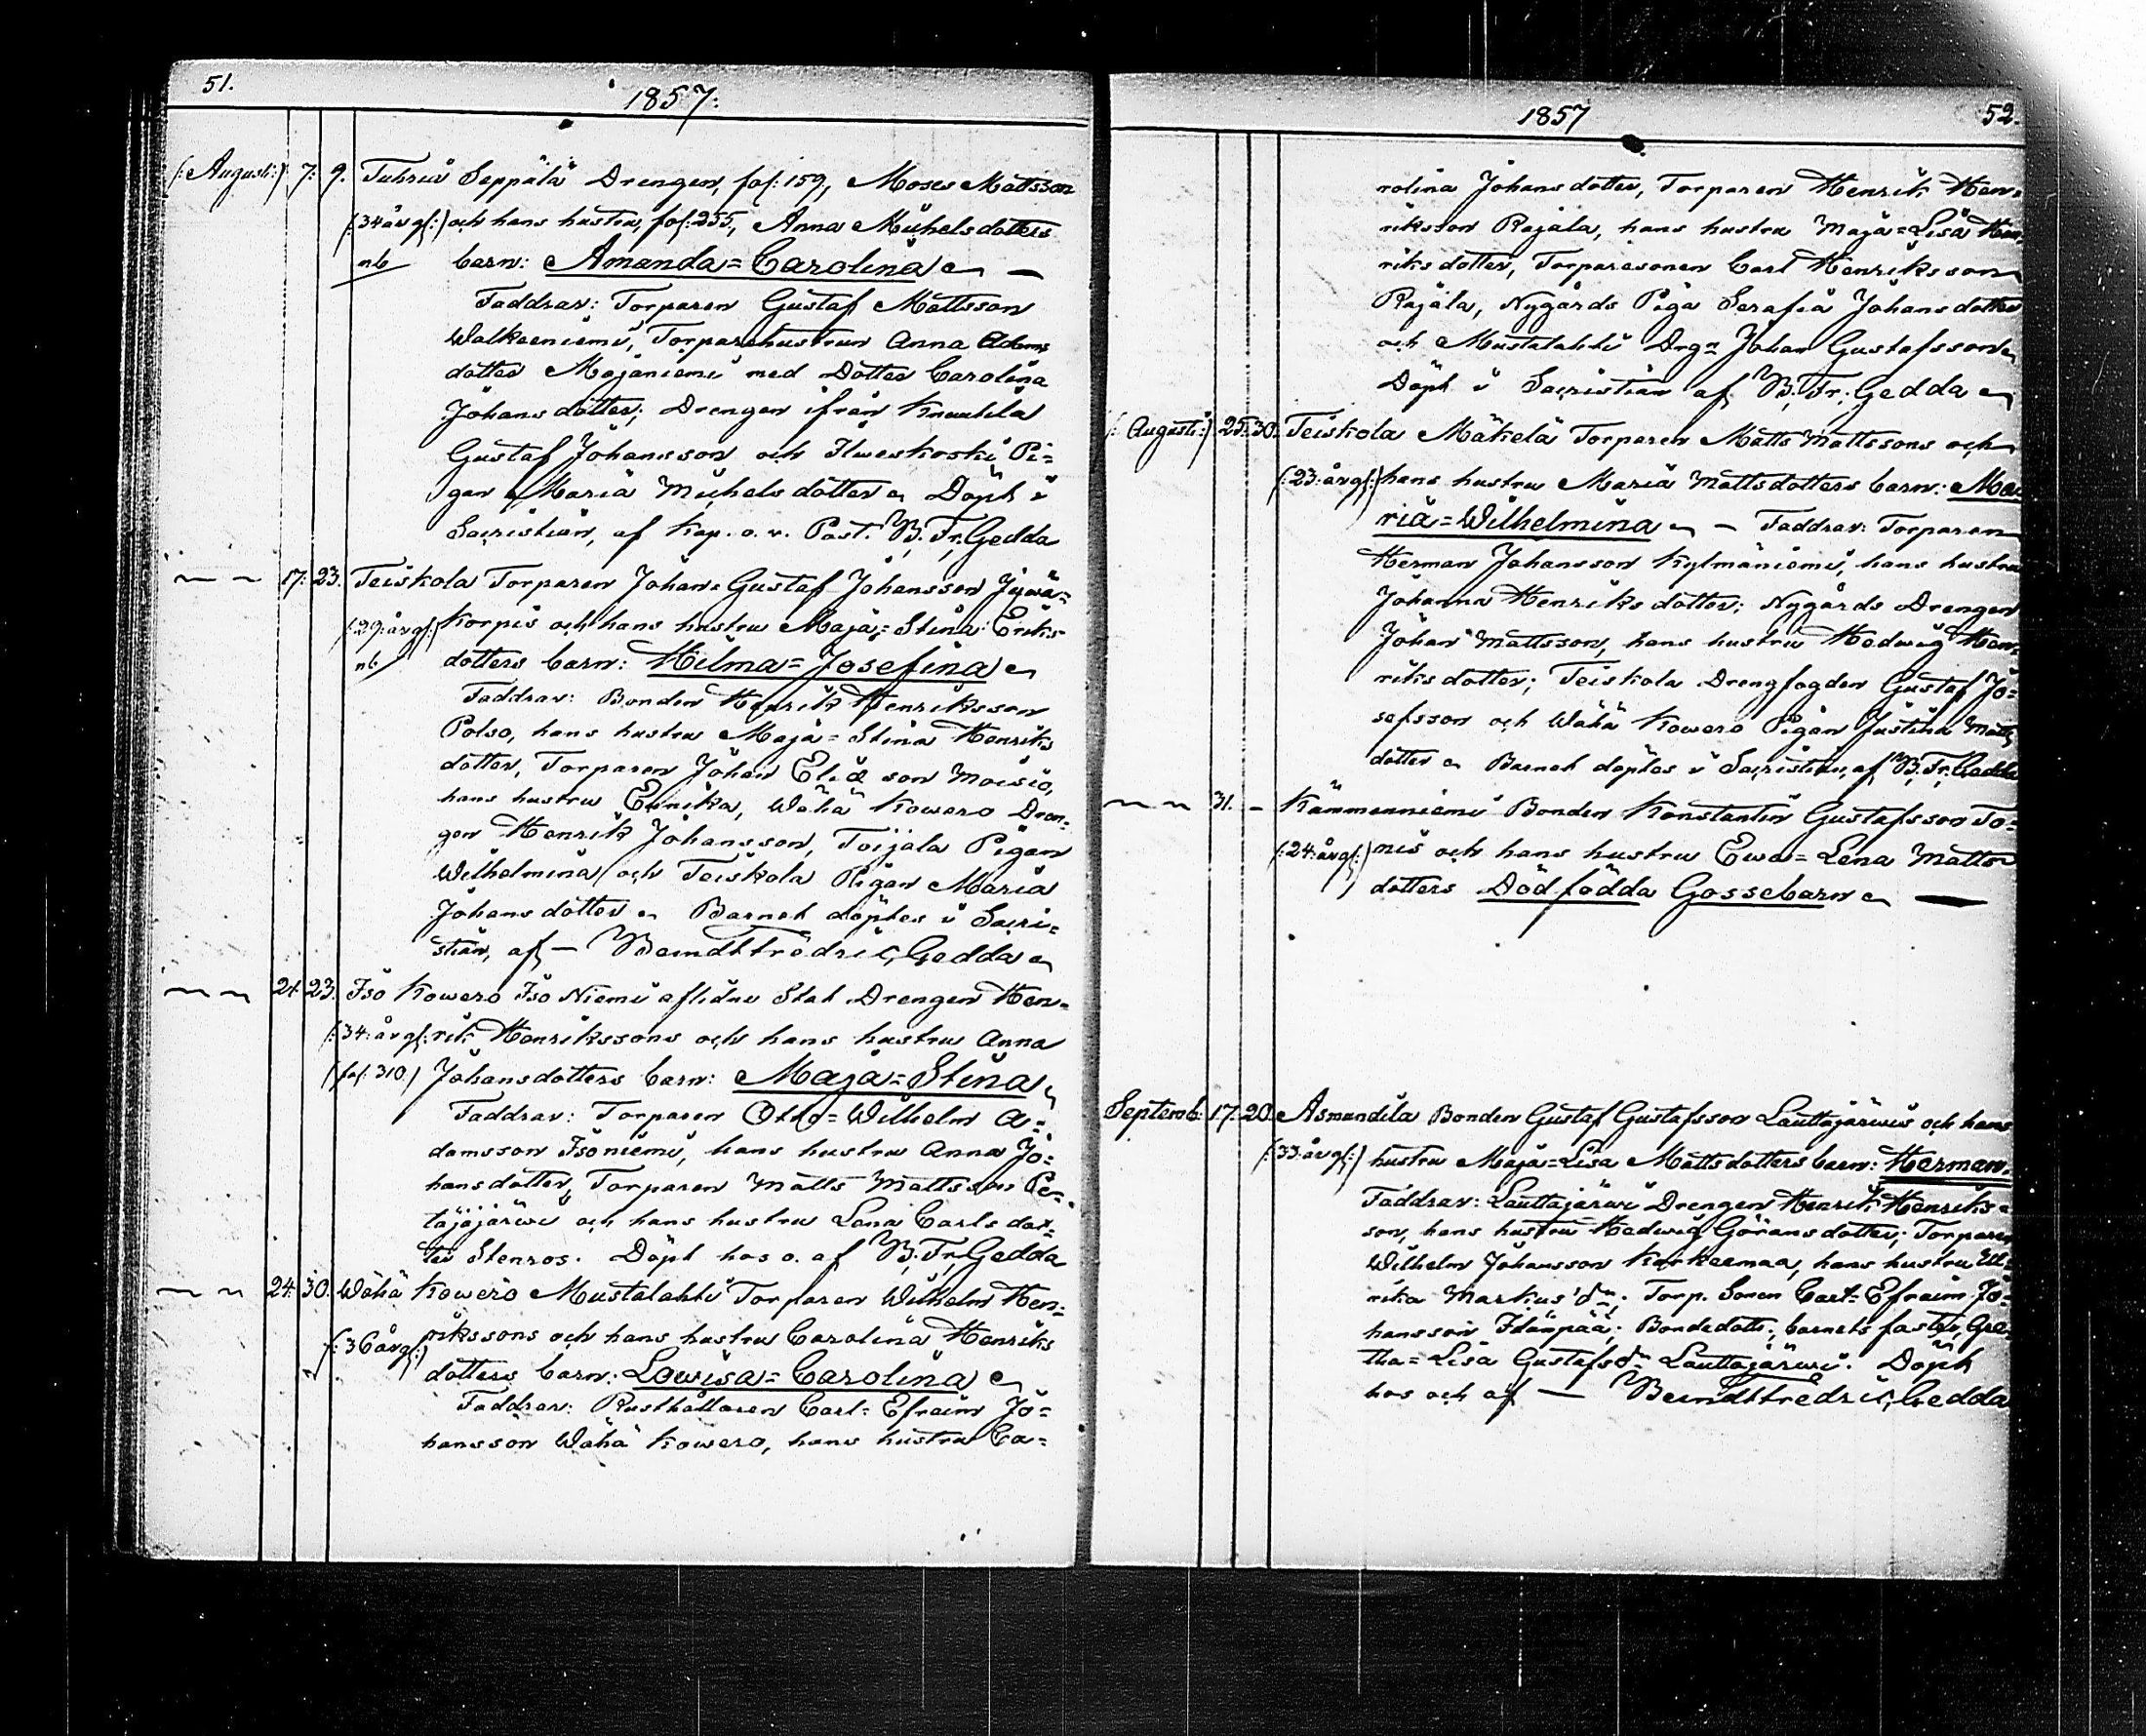 51.
1857.
(: Augusti :) 7. 9. Tuhria Seppälä Drengen, fol: 159, Moses Mattsson
(: 34 år gl :) och hans hustru, fol: 255, Anna Michelsdotters
nb barn: Amanda=Carolina
Faddrar: Torparen Gustaf Mattsson
Walkeeniemi, Torparehustrun Anna Adams
dotter Majaniemi med Dotter Carolina
Johansdotter; Drengen ifrån Knuutila
Gustaf Johansson och Ilweskoski Pi=
gan Maria Michelsdotter Döpt i
Sacristian, af Kap. o. v. Past. B. Fr. Gedda
17. 23. Teiskola Torparen Johan Gustaf Johansson Jywä=
(: 29: år gl :) korpis och hans hustru Maja=Stina Eriks=
nb dotters barn: Hilma=Josefina
Faddrar: Bonden Henrik Henriksson
Polso, hans hustru Maja=Stina Henriks
dotter, Torparen Johan Eliæ son Moisio,
hans hustru Eunika, Wähä Kowero Dren=
gen Henrik Johansson, Toijala Pigan
Wilhelmina och Teiskola Pigan Maria
Johansdotter Barnet döptes i Sacri=
stian, af — Berndt Fredric Gedda
21. 23. Iso Kowero Iso Niemi aflidne Stat Drengen Hen=
(: 34: år gl: rik Henrikssons och hans hustru Anna
(fol: 310) Johansdotters barn: Maja=Stina
Faddrar: Torparen Otto=Wilhelm A=
damsson Isoniemi, hans hustru Anna Jo=
hansdotter, Torparen Matts Mattsson Pe=
täjäjärwi och hans hustru Lena Carlsdot=
ter Stenros. Döpt hos o. af B. Fr. Gedda
24. 30. Wähä Kowero Mustalahti Torparen Wilhelm Hen=
(: 36 år gl :) rikssons och hans hustru Carolina Henriks
dotters barn: Lowisa=Carolina
Faddrar: Rusthållaren Carl=Efraim Jo=
hansson Wähä Kowero, hans hustru Ca=
1857
52.
rolina Johansdotter, Torparen Henrik Hen=
riksson Rajala, hans hustru Maja=Lisa Hen
riksdotter, Torparesonen Carl Henriksson
Rajala, Nygårds Piga Serafia Johansdotter
och Mustalahti Drgn Johan Gustafsson
Döpt i Sacristian af B. Fr. Gedda
(: Augusti :) 25. 30. Teiskola Mäkelä Torparen Matts Mattssons och
(: 23: år gl :) hans hustru Maria Mattsdotters barn: Ma
ria=Wilhelmina — Faddrar: Torparen
Herman Johansson Kylmäniemi, hans hustru
Johanna Henriksdotter; Nygårds Drengen
Johan Mattsson, hans hustru Hedwig Hen=
riksdotter; Teiskola Drengfogden Gustaf Jo=
sefsson och Wähä Kowero Pigan Justina Matts
dotter Barnet döptes i Sacristian, af B. Fr. Gedda
31. – Kämmenniemi Bonden Konstantin Gustafsson To=
(: 24: år gl :) nis och hans hustru Ewa=Lena Matts
dotters Död födda Gossebarn —
Septemb. 17. 20. Asmundila Bonden Gustaf Gustafsson Lauttajärwis och hans
(: 33: år gl :) hustru Maja=Lisa Mattsdotters barn: Herman.
Faddrar: Lauttajärwi Drengen Henrik Henriks=
son, hans hustru Hedwig Göransdotter; Torparen
Wilhelm Johansson Korkeemaa, hans hustru Ul=
rika Markus'dr; Torp. Sonen Carl=Efraim Jo=
hansson Ylänpää; Bondedott., barnets faster, Gre=
tha=Lisa Gustafsdr Lauttajärwi. Döpt
hos och af — Berndt Fredric Gedda